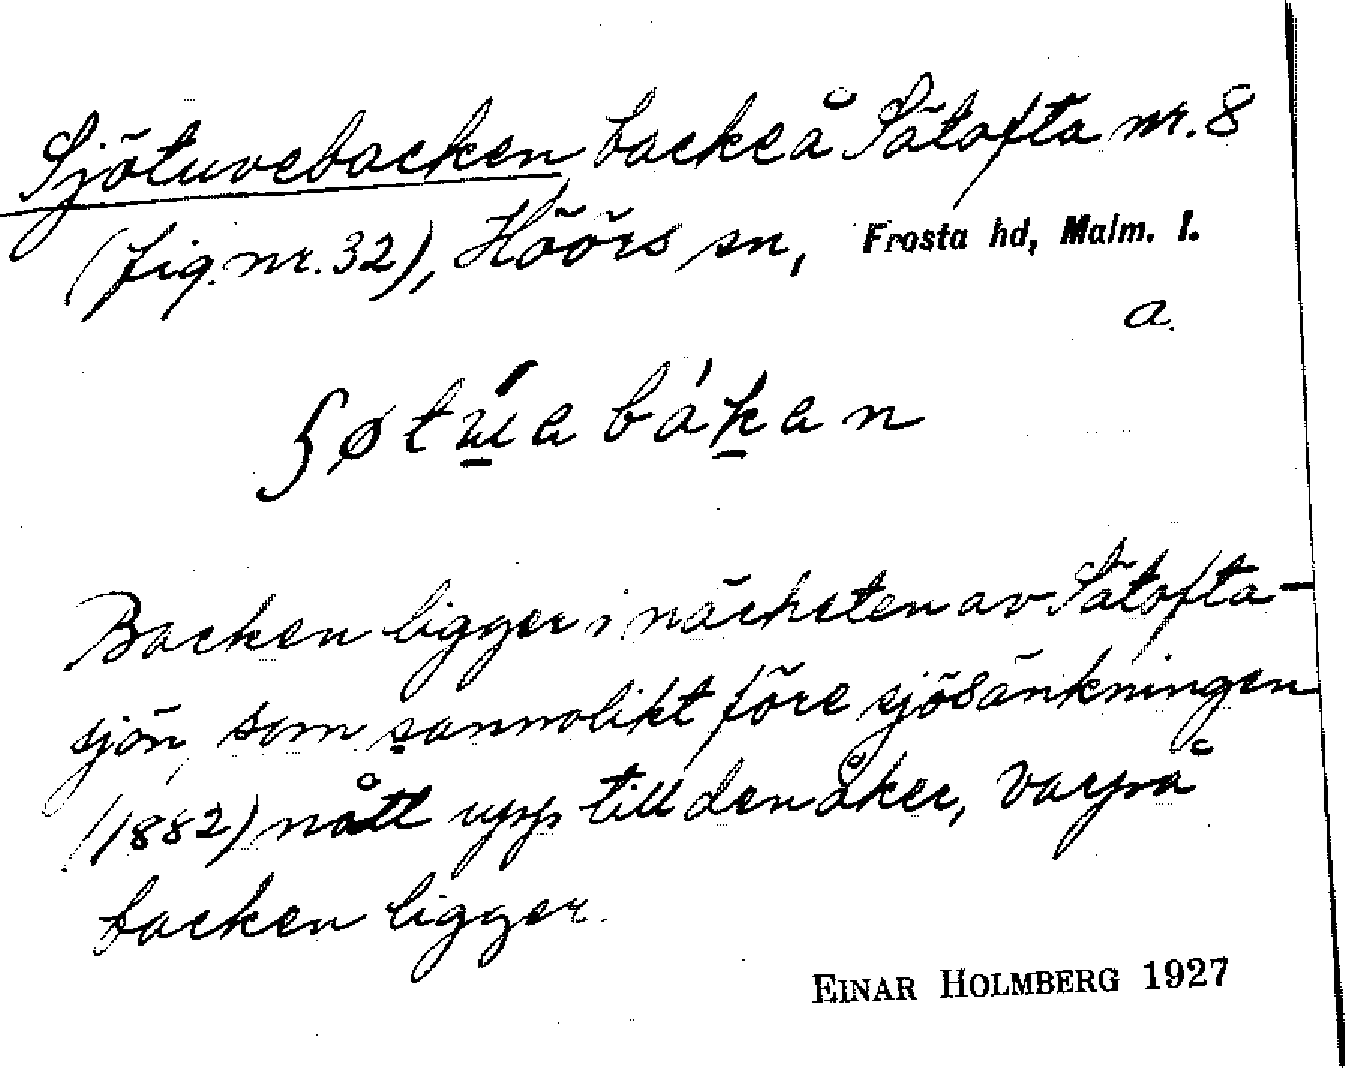 Sjötuvebacken backe å Sätofta nr. 8
(fig. nr. 32), Höörs sn, Frosta hd, Malm. l.
a.
Backen ligger i närheten av Sätofta-
sjön, som sannolikt före sjösänkningen
(1882) nått upp till den åker, varpå
backen ligger.
EINAR HOLMBERG 1927